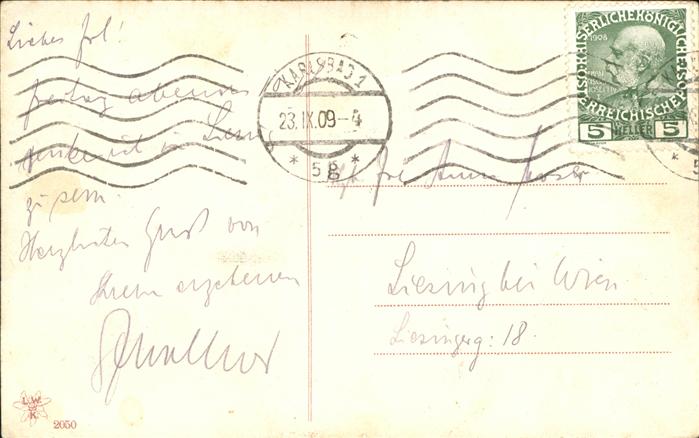 Liebes Frl!
freitag abends
denke ich in Liesing
zu sein.
Herzlichsten Gruß von
Ihrem ergebenen
KARLSBAD 1
23.IX.09-4
* 5g *
KAISERLICHE KÖNIGLICHE
ÖSTERREICHISCHE
1908
5 HELLER 5
Frl. Anna Moser
Liesing bei Wien
Liesingerg: 18.
L.W.
K.
2050